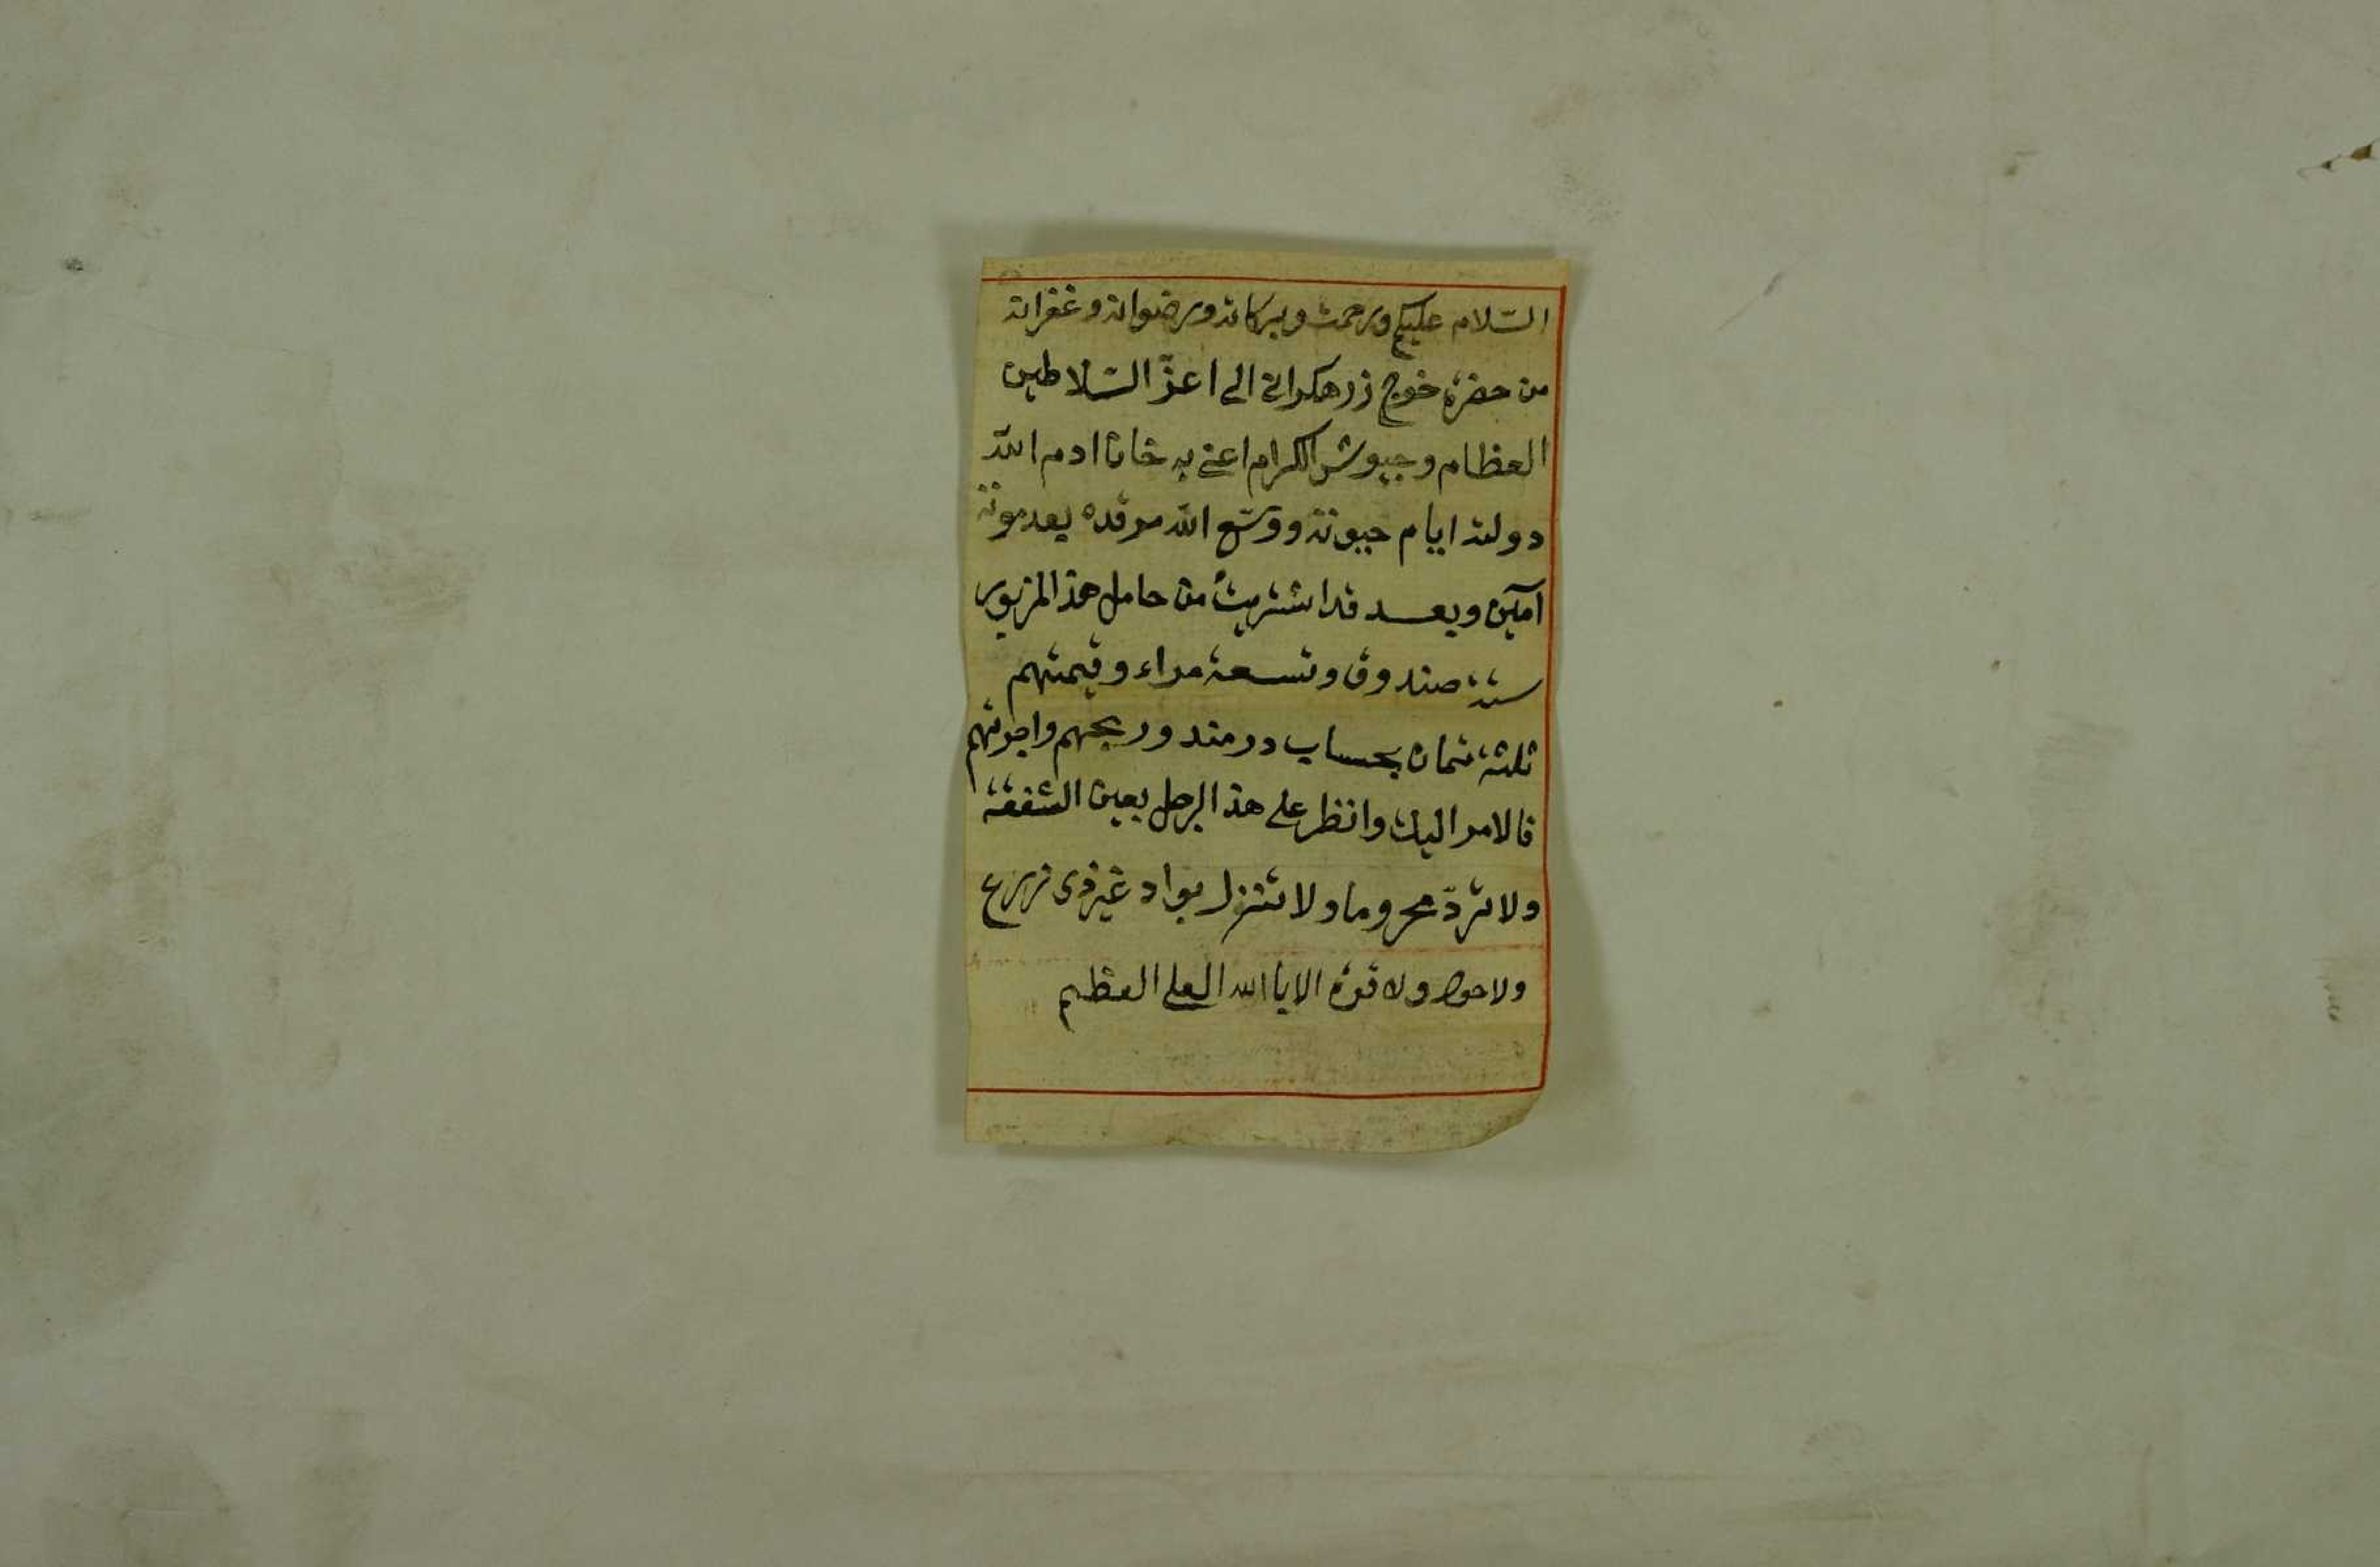 السّلام عليكم ورحمته وبركاته ورضوانه وغفرانه
من حضرة خوج زرهكراني الى اعزّ السّلاطين
العظام وجيوش الكرام اعني به خانا ادم اللّه
دولته ايام حيوته ووسّع اللّه مرقده بعد موته
آمين وبعد قد اشتريتُ من حامل هذ المزبور
ستة صندوق وتسعة مراء وقيمتهم
ثلثة تمان بحساب درمند وربحهم واجرتهم
فالامر اليك وانظر على هذ الرجل بعين الشفقة
ولا تردّ محروما ولا تنزل بواد غير ذى زرع
ولا حول ولا قوة الا باالله العلى العظيم